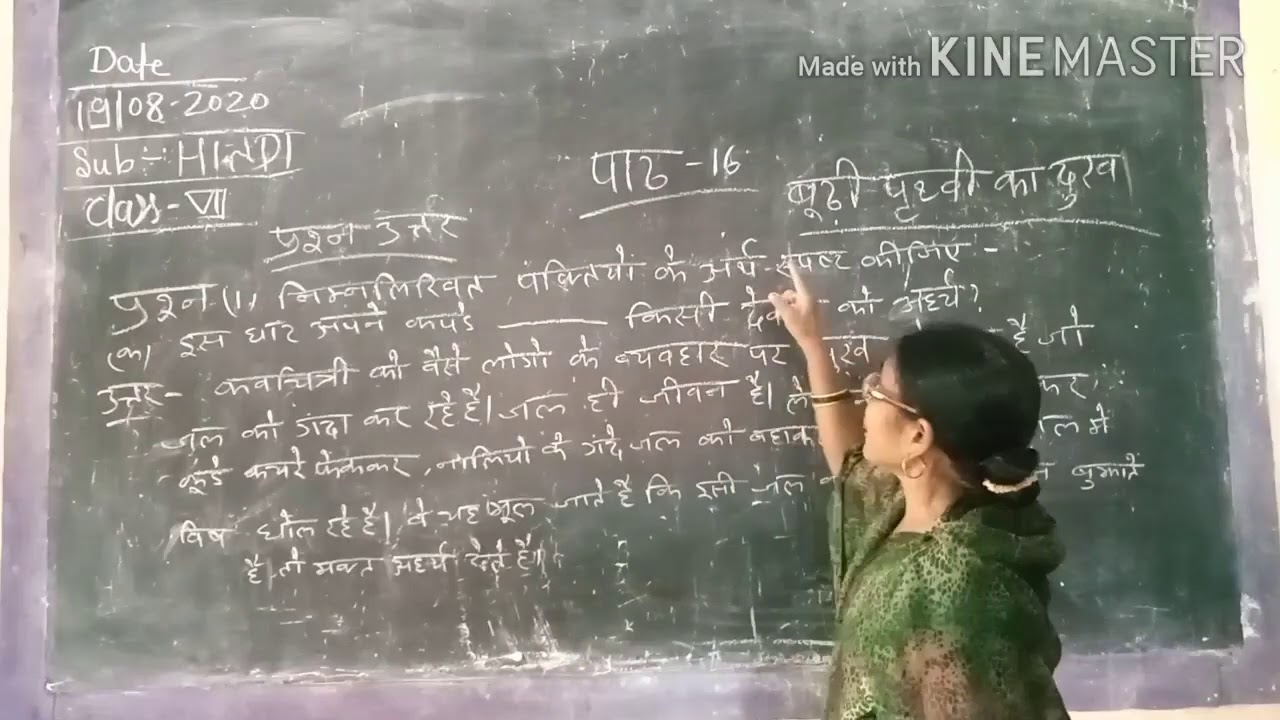 Made with KINEMASTER
Date
19/08-2020
Sub:- HINDI
Class-VII
पाठ -16
बूढ़ी पृथ्वी का दुख
प्रश्न उत्तर
प्रश्न (1) निम्नलिखित पंक्तियो के अर्थ स्पष्ट कीजिए -
(क) इस घाट अपने कपडे ______ किसी को अर्ध्य?
उत्तर- कवयित्री को वैसे लोगो के व्यवहार पर है जो
जल को गंदा कर रहे है। जल ही जीवन है। कर
कूडे कचरे फेककर, नालियो के गंदे जल को बहाकर
विष घोल रहे है। वे यह भूल जाते है कि इसी जल बुझाते
है, तो भक्त अर्ध्य देते है।